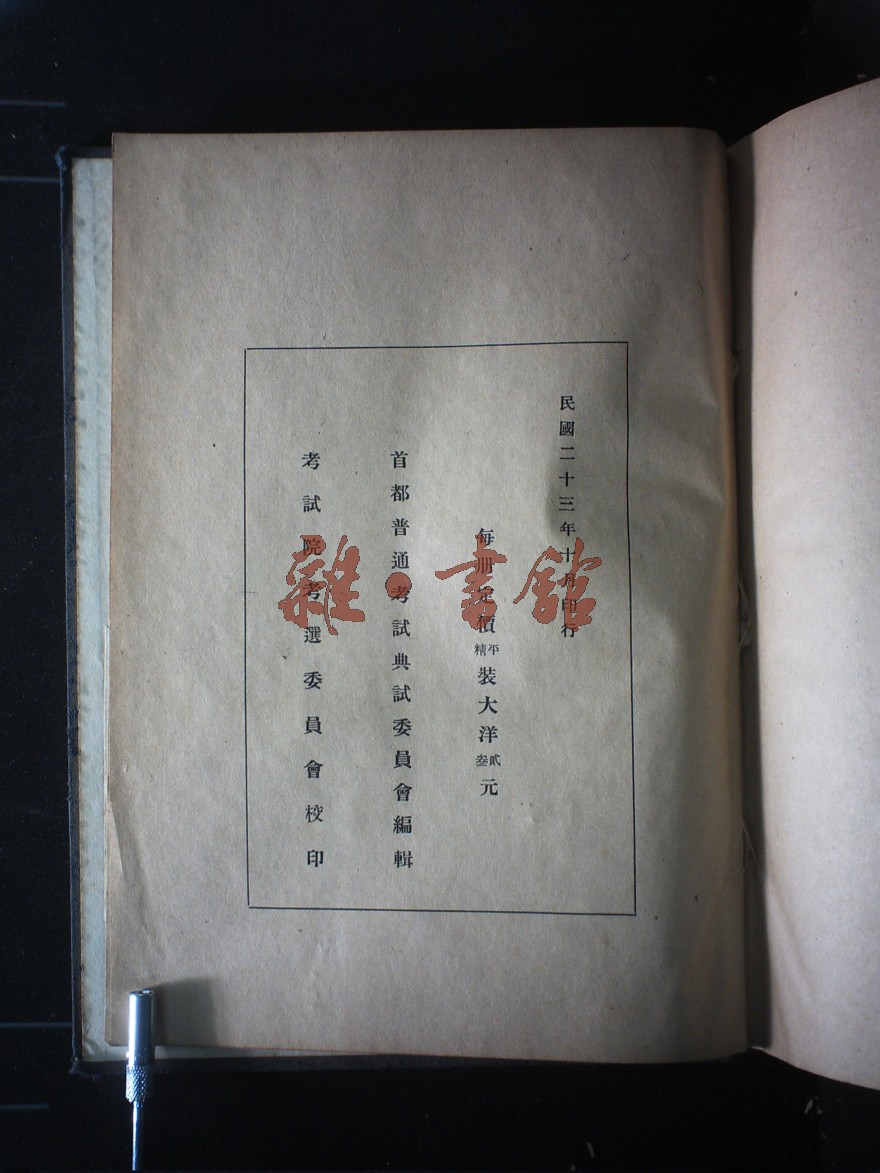 民國二十三年十月印行
每册定價平精裝大洋貳叁元
首都普通考試典試委員會編輯
考試院考選委員會校印
雜·書館